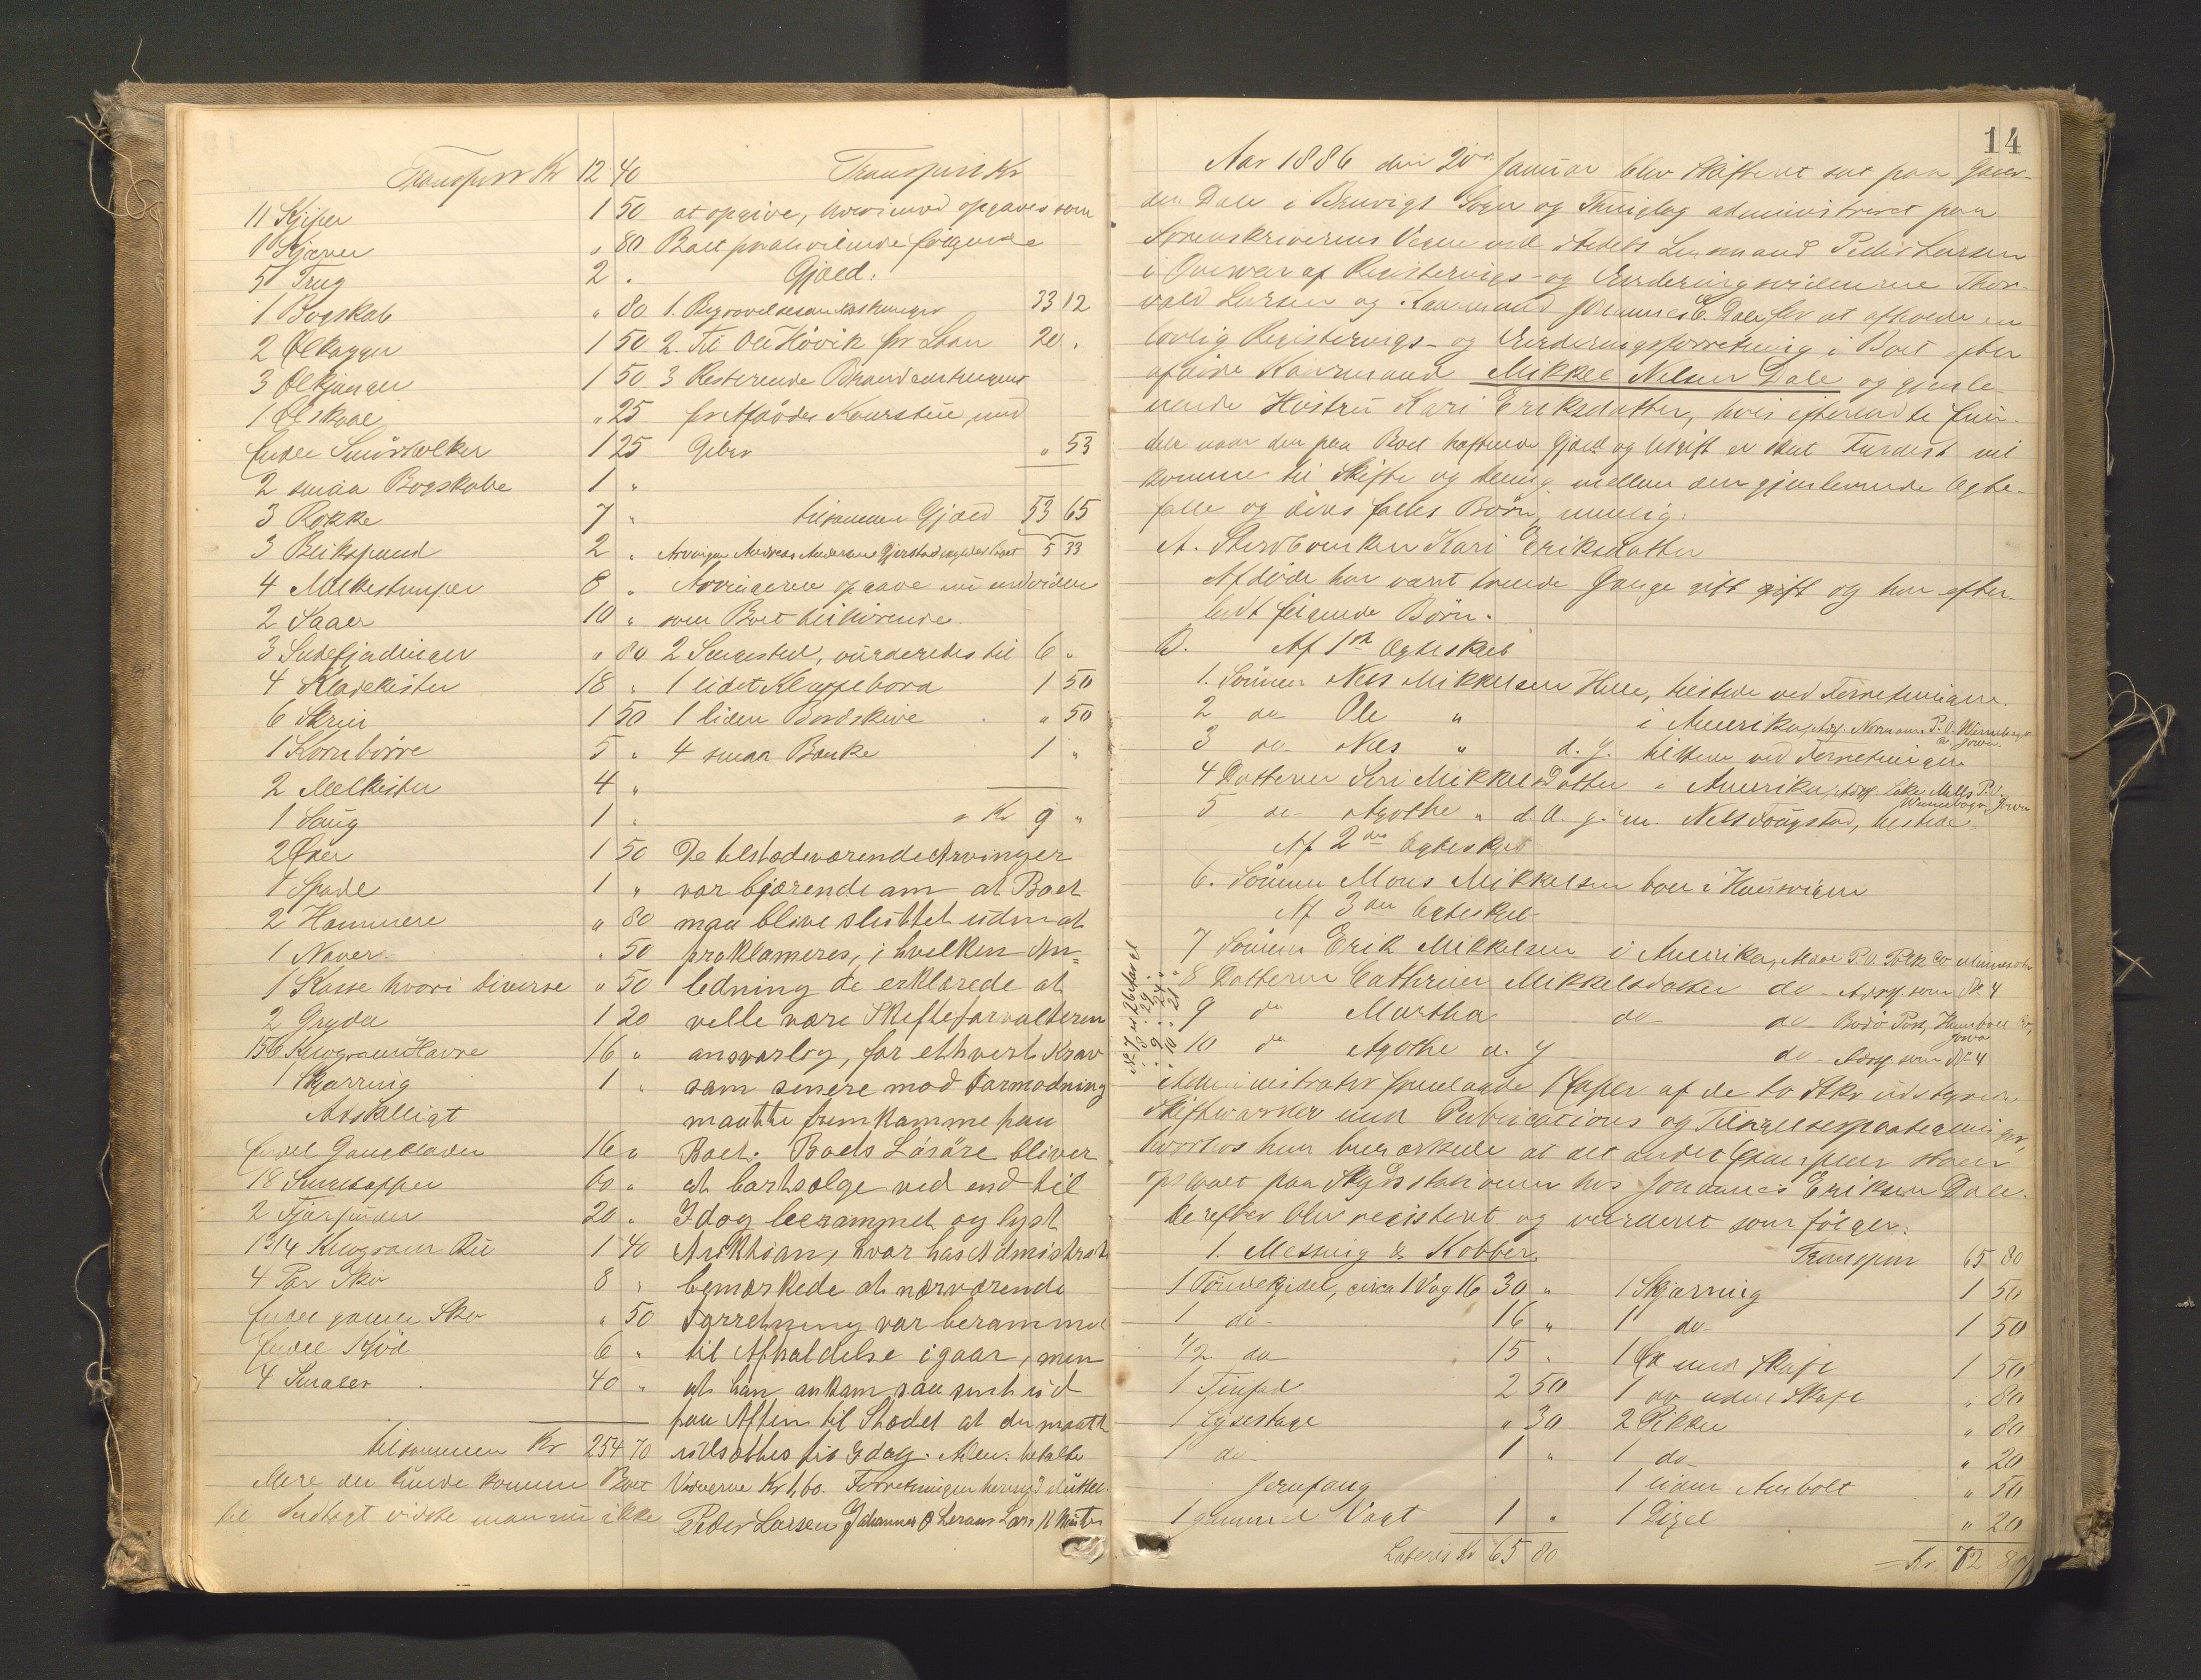 Transport Kr 12 40
11 Kjiper 1 50
1 Kjærne " 80
5 Trug 2 "
1 Bogskab " 80
2 Ølkagger 1 50
3 Ølkjanger 1 50
1 Ølskaal " 25
Endel Smørstolker 1 25
2 smaa Bogskabe 1 "
3 Rokke 7 "
3 Blikspand 2 "
4 Melkestamper 8 "
2 Saaer 10 "
3 Sildefjerdinger " 80
4 Klædekister 18 "
6 Skrin 1 50
1 Kornbørre 5 "
2 Melkister 4 "
1 Saug 1 "
2 Øxer 1 50
1 Spade 1 "
2 Hammere " 80
1 Naver " 50
1 Kasse hvori diverse " 50
2 Gryder 1 20
156 Kilogram Havre 16 "
1 Skjærring 1 "
Adskilligt
Endel Gangklæder 16 "
18 60 "
2 20 "
1 3/4 Kilogram 1 40
4 Par Sko 8 "
Endel gamle Sko " 50
Endel Kjød 6 "
4 Smaler 40 "
tilsammen Kr 254 70
Mere der kunde komme Boet
til Indtægt vidste man nu ikke
Transport Kr
at opgive, hvorimod opgaves som
Boet paahvilende følgende
Gjæld:
1. Begravelsesomkostninger 33 12
2. Til Ole Høvik for Laan 20 "
3 Resterende Brandcontingent
for Afdødes Kaarstue, med
Gebyr " 53
tilsammen Gjæld 53 65
Arvingen Andreas Andersen Gjerstad skylder boet 5 33
Arvingerne opgave nu endvidere
som Boet tilhørende.
2 Sengested, vurderedes til 6 "
1 lidet Klappebord 1 50
1 liden Bordskive " 50
4 smaa Bænke 1 "
= Kr 9 "
De tilstædeværende Arvinger
var begjærende om at Boet
maa blive sluttet uden at
proklameres, i hvilken An=
ledning de erklærede at
ville være Skifteforvalteren
ansvarlig, for ethvert Krav
som senere mod Formodning
maatte fremkomme paa
Boet. Boets Løsøre bliver
at bortsælge ved end til
Idag berammet og lyst
Auktion, hvorhos Admistrat
bemærkede at nærværende
Forretning var berammet
til Afholdelse igaar, men
at han ankom saa sent ud
paa Aften til Stedet at den maatte
udsættes til Idag. Adm. betalte
Vidnerne Kr 1,60. Forretningen hermed sluttet.
Peder Larsen Johannes O
14
Aar 1886 den 20de Januar blev Skifteret sat paa Gaar-
den Dale i Bruvigs Sogn og Thinglag administreret paa
Sorenskriverens Vegne ved Stedets Lensmand Peder Larsen
i Overvær af Registerings- og Vurderingsvidnerne Thor-
vald Larsen og Kaarmand Johannes E. Dale for at afholde en
lovlig Registerings- og Vurderingsforretning i Boet efter
afdøde Kaarmand Mikkel Nilsen Dale og gjenle-
vende Hustru Kari Eriksdatter, hvis efterladte Eien-
dele naar den paa Boet heftende Gjæld og Udgift er skeet Fyldest vil
komme til Skifte og Deling mellem den gjenlevende Ægte-
fælle og deres fælles Børn, nemlig:
A. Stervboenken Kari Eriksdatter
Afdøde har været trende Gange gift gift og har efter-
ladt følgende Børn.
B. Af 1ste Ægteskab
1. Sønnen Nels Mikkelsen Helle, tilstede ved Forretningen.
2 do Ole " i Amerika, Adrs. Norman P.O. Winnebago
Co. Jowa.
3 do Nels " d. y. tilstede ved Forretningen
4 Datteren Siri Mikkelsdatter i Amerika, Adrs. Lake Mills P.O.
Winnebago, Jowa
5 do Agathe " d. Æ. g. m. Nels , tilstede
Af 2den Ægteskab
6. Sønnen Mons Mikkelsen boer i
Af 3die Ægteskab
7 Sønnen Erik Mikkelsen i Amerika, P.O. Polk Co Minnesota
8 Datteren Cathrine Mikkelsdatter do Adrs. som No 4
9 do Martha do do Bodø Post, Humboldt Co,
Jowa
10 do Agathe d. y do Adrs. som No 4
No 7 er 26 Aar gl
" 8 " 29 "
" 9 " 24 "
" 10 " 21 "
Administrator fremlagde 1 Expl af de to Stkr udstyrede
Skiftevarsler med Publications og Tilstillelsespaategninger,
hvorhos han bemærkede at det andet Exemplar staar
opslaaet paa Skydsstationen hos Johannes Eriksen Dale.
Derefter blev registeret og vurderet som følger:
1. Messing & Kobber.
1 Tøndekjedel, circa 1 Vog 16 30 "
1 do 16 "
1/2 do 15 "
1 Tinfad 2 50
1 Lysestage " 30
1 do 1 "
Jernfang
1 gammel Vægt 1 "
Lateris Kr 65 80
Transport 65 80
1 Skjærring 1 50
1 do 1 50
1 Øx med Skaft 1 50
1 do uden Skaft " 80
2 Pikker " 80
1 do " 20
1 liden Ambolt " 50
1 Digel " 20
= Kr. 72 80